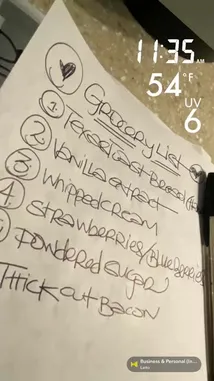 11:35 AM
54 °F
UV
6
Grocery List
1 Texas Toast Bread
2 Vanilla extract
3 whipped cream
4 strawberries/Blueberries
Powdered sugar
Thick cut Bacon
Business & Personal (In...